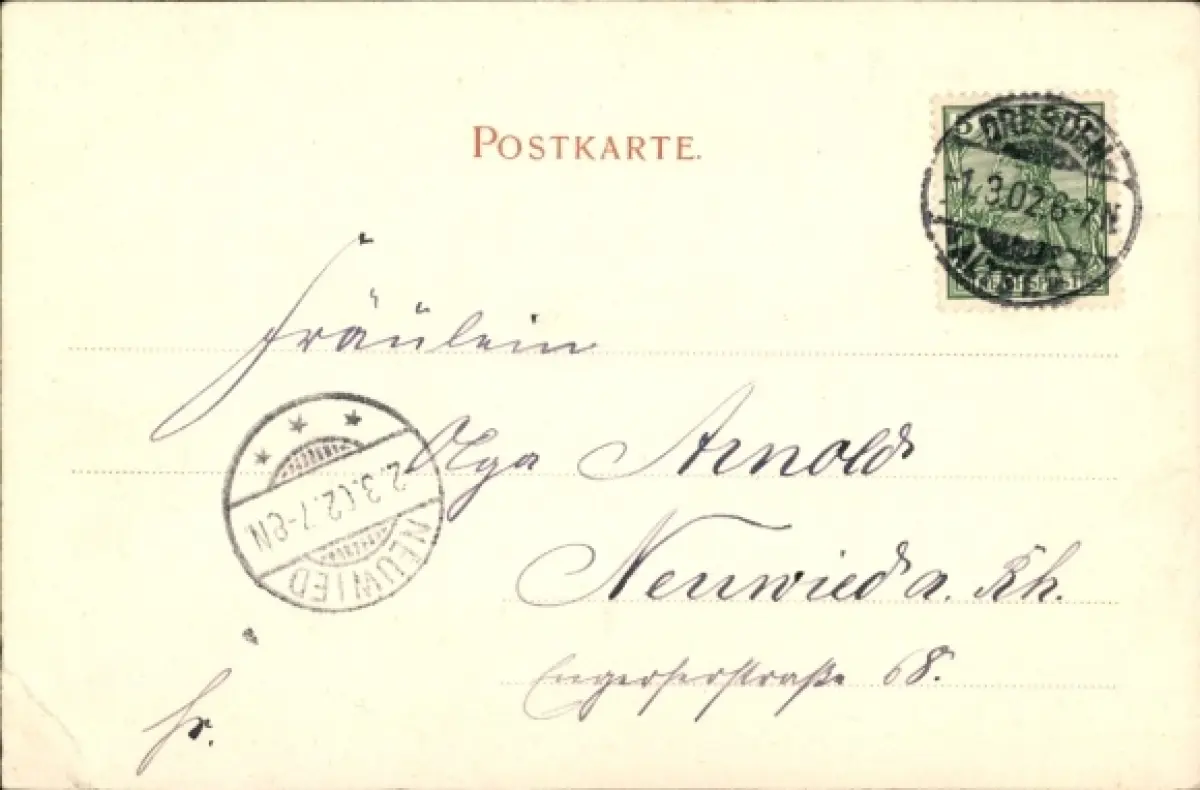 POSTKARTE.
5
DRESDEN
-1.3.02.6-7N
ALTST.
Fräulein
Olga Arnold
NEUWIED
2.3.02.7-8N.
Neuwied a. Rh.
Engerserstraße 68.
fr.